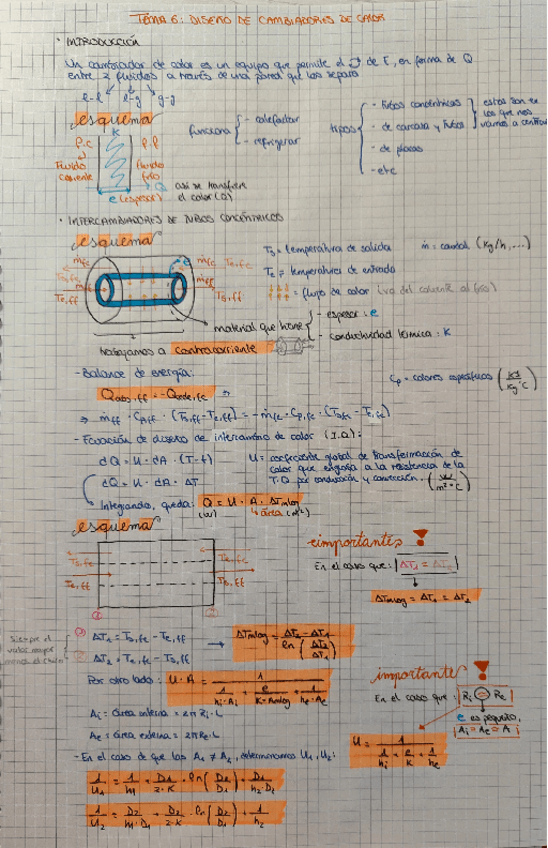 TEMA 6: DISEÑO DE CAMBIADORES DE CALOR
· INTRODUCCIÓN
Un cambiador de calor es un equipo que permite el de E, en forma de Q
entre 2 fluidos a través de una pared que los separa
l-l l-g g-g
esquema
K
F.C F.F
Fluido caliente
Fluido frío
Q
e (espesor)
así se transfiere
el calor (Q)
funciona
- calefactar
- refrigerar
tipos
- Tubos concéntricos
- de carcasa y Tubos
- de placas
- etc
estos son en
los que nos
vamos a centrar
· INTERCAMBIADORES DE TUBOS CONCÉNTRICOS
esquema
ṁfc ṁfc Te,fc
Ts,fc ṁff
Te,ff Ts,ff
e
Ts = temperatura de salida ṁ = caudal (Kg/h, ...)
Te = temperatura de entrada
= flujo de calor (va del caliente al frío)
material que tiene
- espesor : e
- conductividad térmica : K
trabajamos a contracorriente
- Balance de energía:
Cp = calores específicos (KJ/Kg·ºC)
Qabs,ff = -Qcede,fc ⇒
⇒ ṁff · Cp,ff · (Ts,ff - Te,ff) = - ṁfc · Cp,fc · (Ts,fc - Te,fc)
- Ecuación de diseño de intercambio de calor (I.Q):
dQ = U · dA · (T - t)
dQ = U · dA · ΔT
U = coeficiente global de transformación de
calor que engloba a la resistencia de la
T.Q por conducción y convección. (W/m²·ºC)
Integrando, queda: Q = U · A · ΔTmlog
(W) área (m²)
esquema
Ts,fc Te,fc
Te,ff Ts,ff
① ②
importantes !
En el caso que: ΔT1 = ΔT2
ΔTmlog = ΔT1 = ΔT2
Siempre el
valor mayor
menos el chico
① ΔT1 = Ts,fc - Te,ff
② ΔT2 = Te,fc - Ts,ff
→ ΔTmlog = (ΔT2 - ΔT1) / ln(ΔT2/ΔT1)
Por otro lado: U · A = 1 / (1/(hi·Ai) + e/(K·Amlog) + 1/(he·Ae))
Ai = área interna = 2π Ri · L
Ae = área externa = 2π Re · L
importante !
En el caso que: Ri ≈ Re
e es pequeño,
Ai = Ae = A
U = 1 / (1/hi + e/K + 1/he)
- En el caso de que las A1 ≠ A2, determinamos U1, U2:
1/U1 = 1/h1 + D1/(2·K) · ln(D2/D1) + D1/(h2·D2)
1/U2 = D2/(h1·D1) + D2/(2·K) · ln(D2/D1) + 1/h2